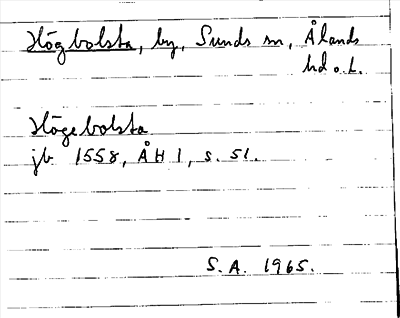 Högbolsta, by, Sunds sn, Ålands
hd o. L.
Högebolsta
jb 1558, ÅH 1, s. 51.
S. A. 1965.